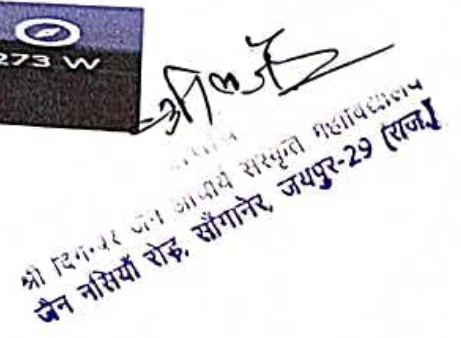 273 W
श्री दिगम्बर जैन आचार्य संस्कृत महाविद्यालय
जैन नसियाँ रोड़, साँगानेर, जयपुर-29 (राज.)